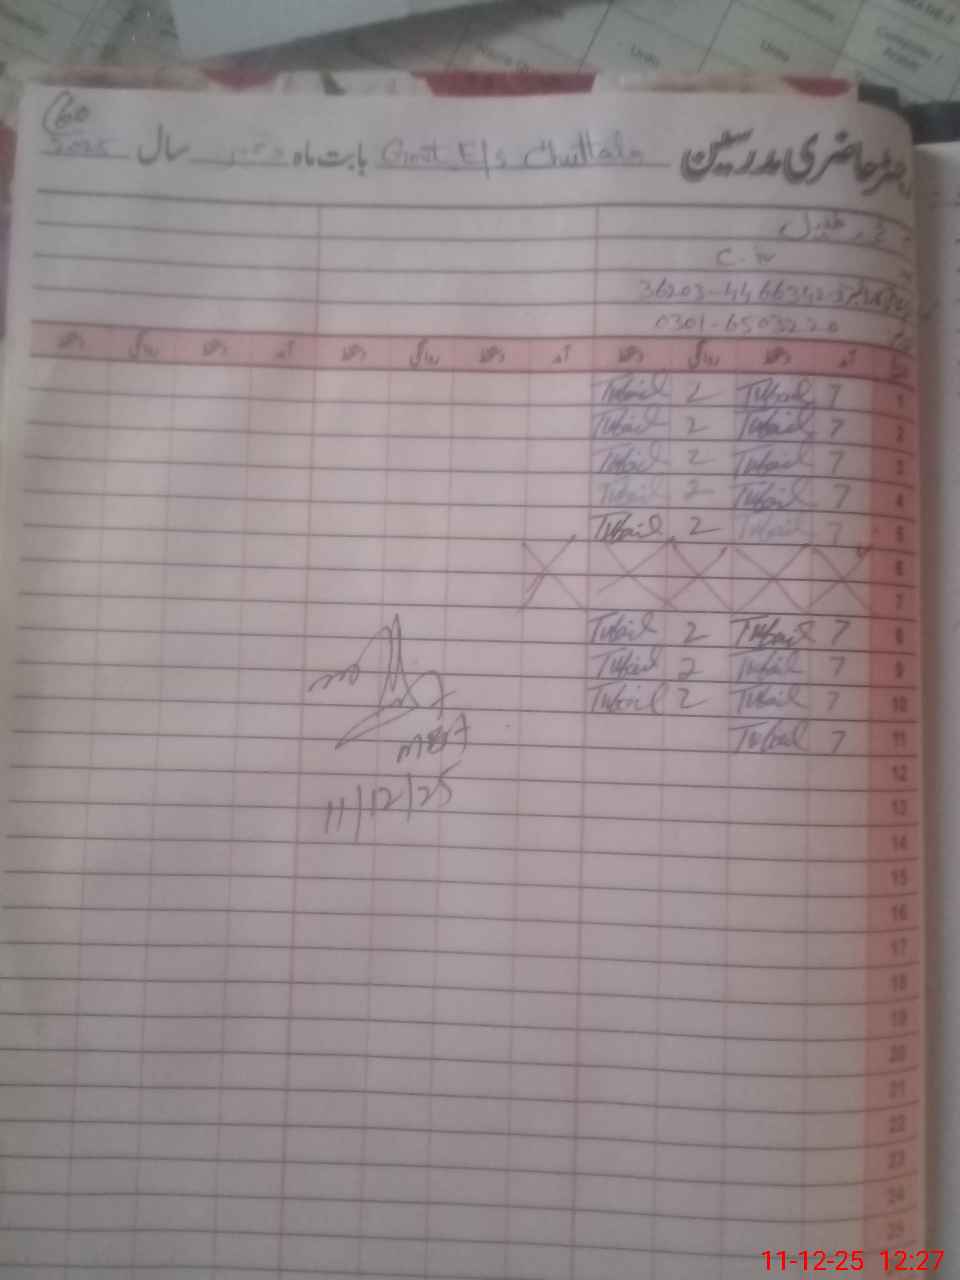 60
رجسٹر حاضری مدرسین Govt E/s بابت ماہ دسمبر سال 2025
محمد طفیل
C. IV
36203-4466342-3
0301-6503220
آمد دستخط روانگی دستخط آمد دستخط روانگی دستخط آمد دستخط روانگی دستخط
1 7 Tufail 2 Tufail
2 7 Tufail 2 Tufail
3 7 Tufail 2 Tufail
4 7 Tufail 2 Tufail
5 7 Tufail 2 Tufail
6
7
8 7 Tufail 2 Tufail
9 7 Tufail 2 Tufail
10 7 Tufail 2 Tufail
11 7 Tufail
MEA
12
11/12/25
13
14
15
16
17
18
19
20
21
22
23
24
25
11-12-25 12:27